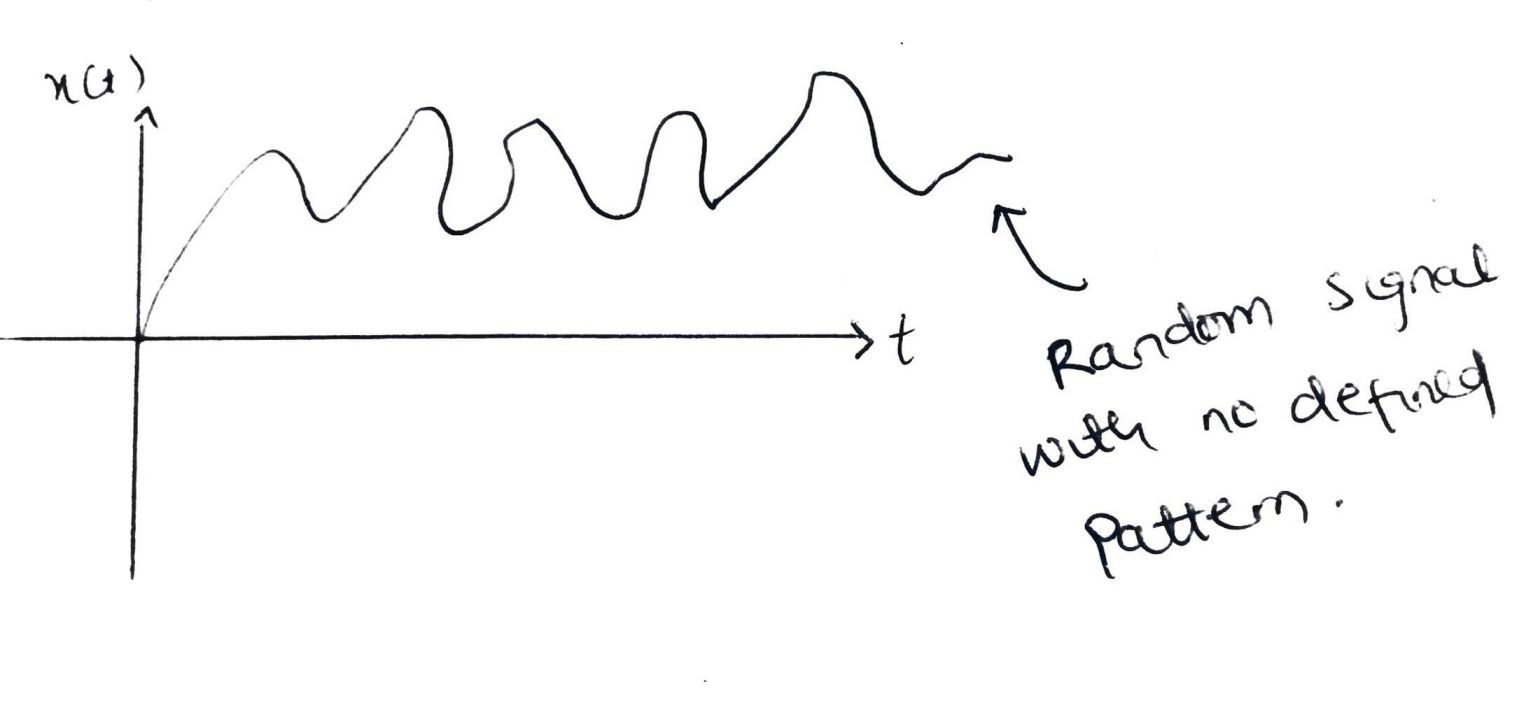 x(t)
t
Random signal
with no defined
pattern.